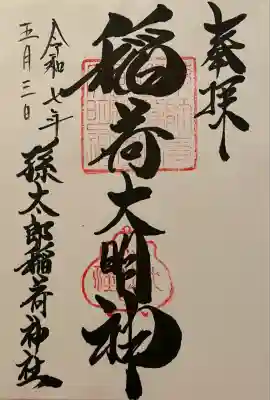 奉拝
稲荷大明神
令和七年
五月三日
孫太郎稲荷神社